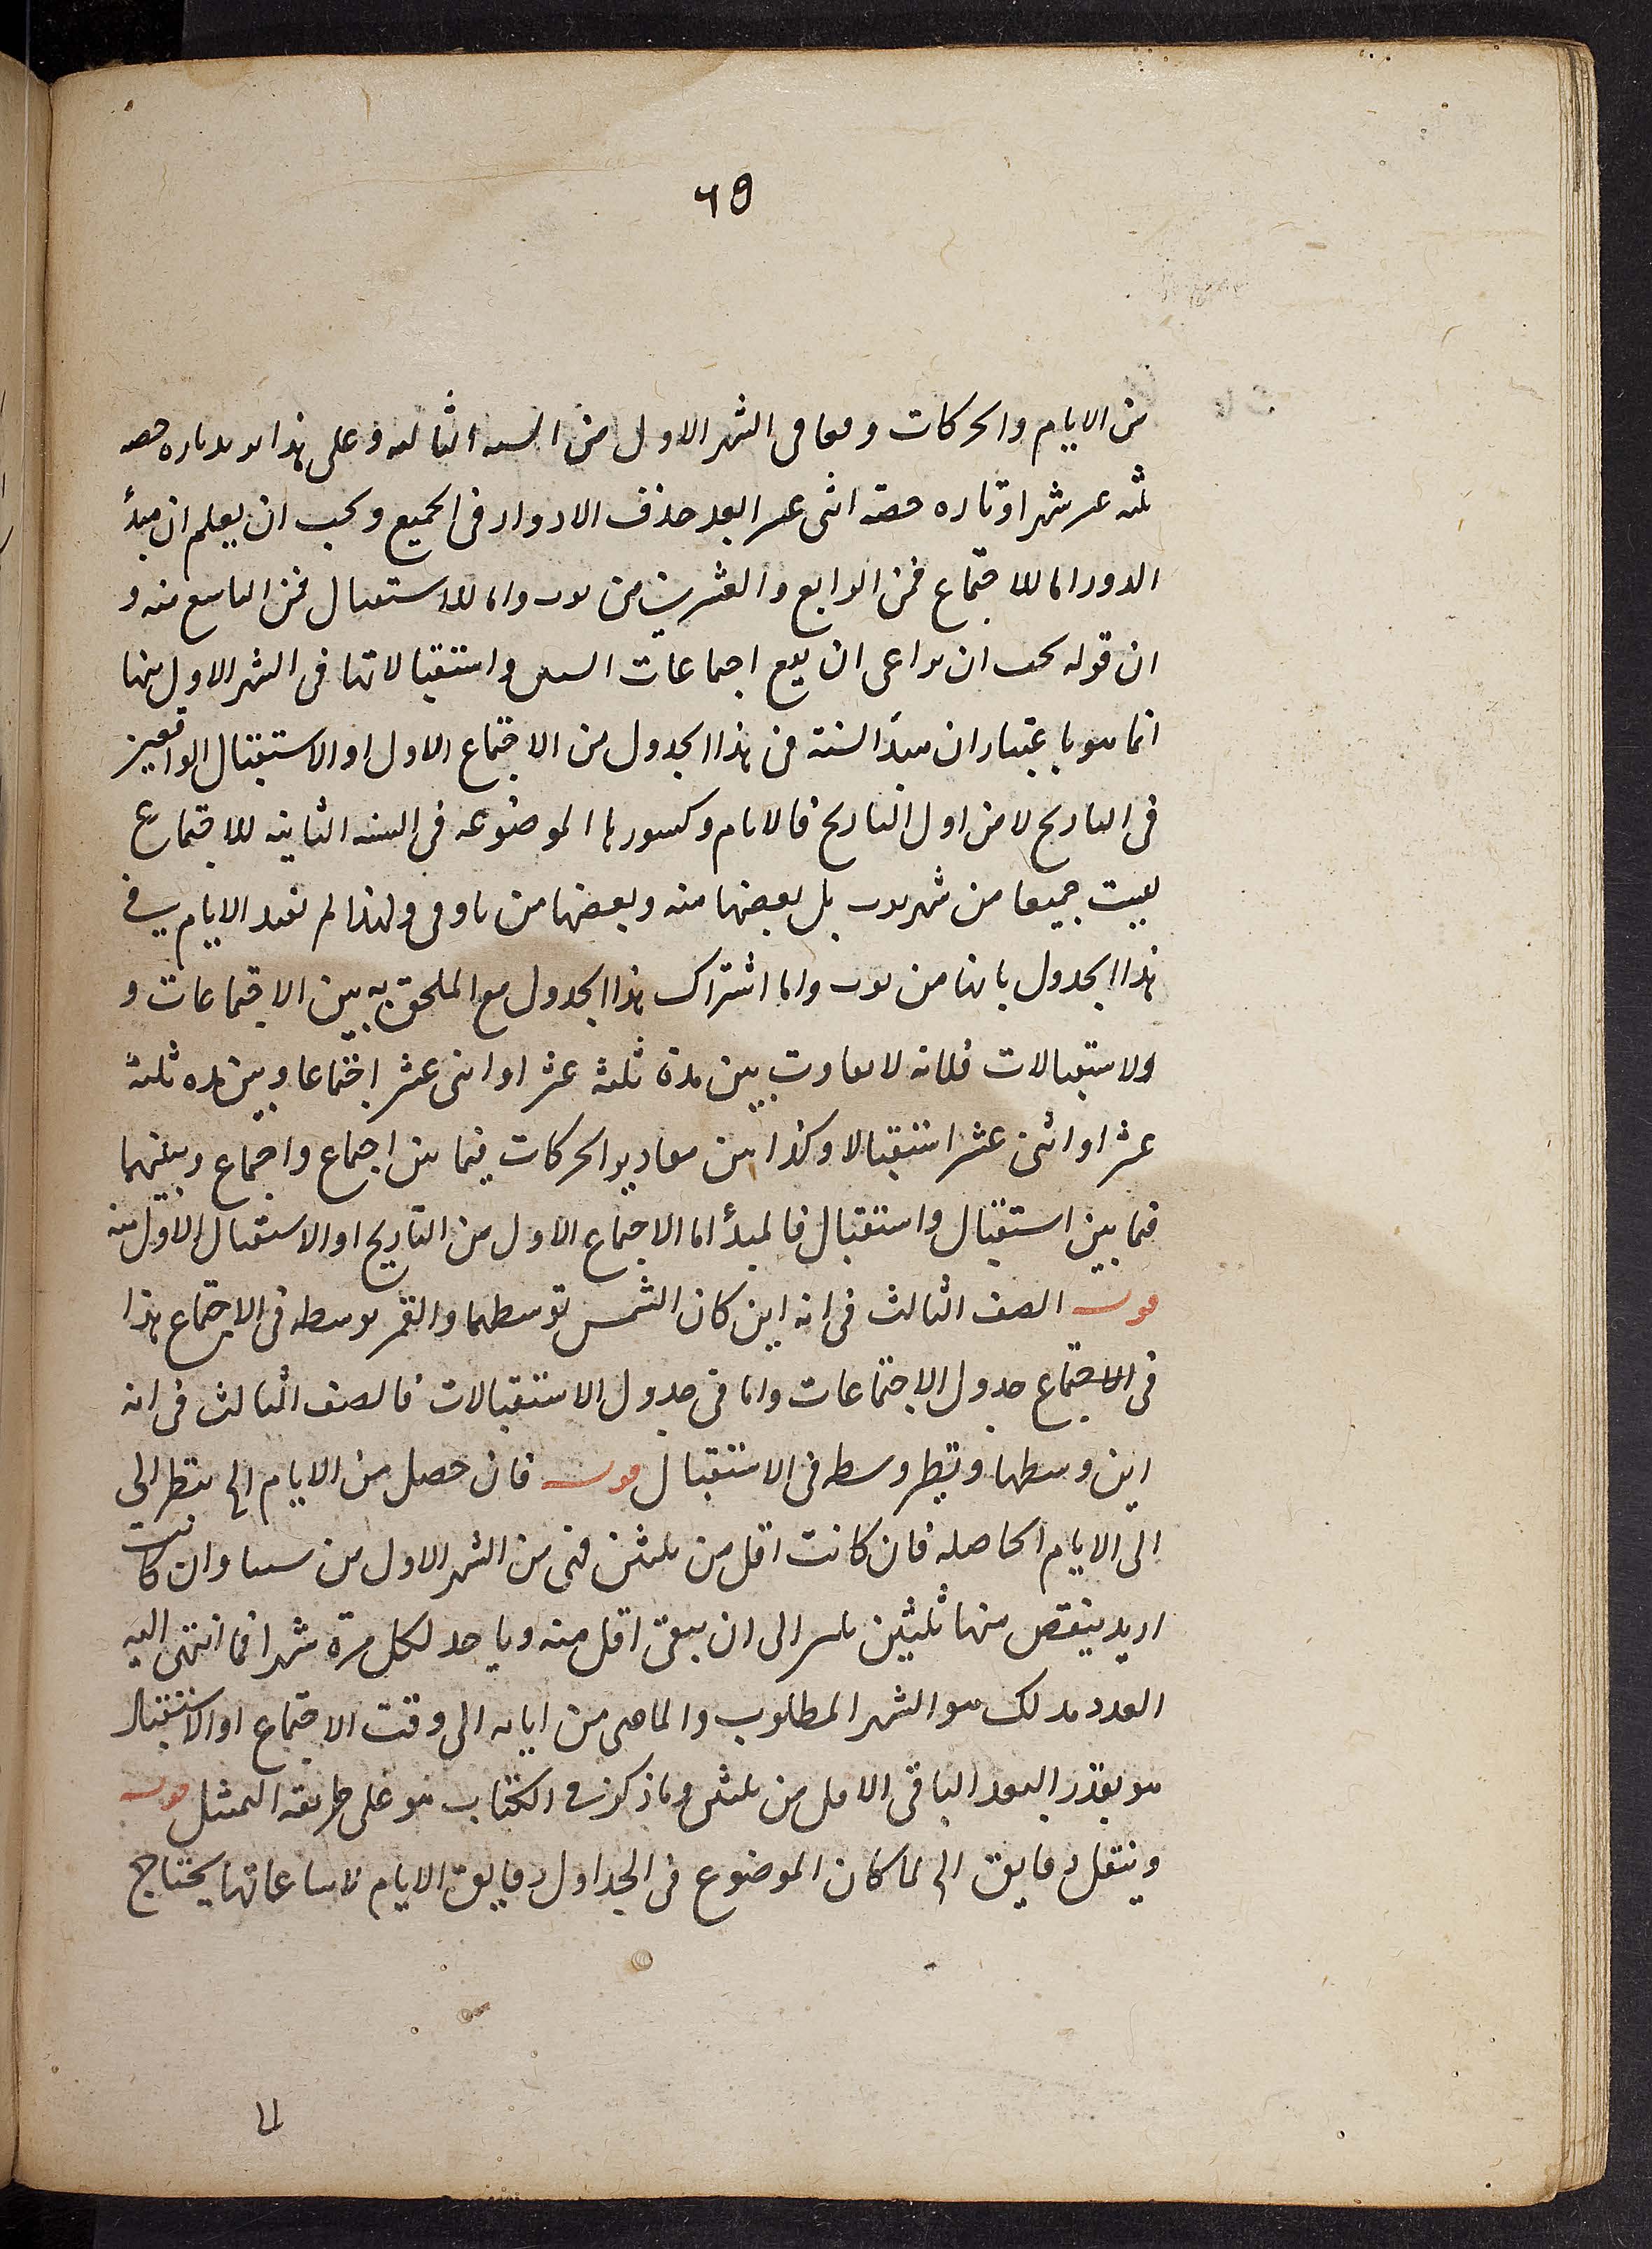 ٦٥
من الايام والحركات وقعا فى الشهر الاول من السنه الثالثه وعلى هذا يزيد تاره حصه
ثلثه عشر شهرا وتاره حصة اثنى عشر ا بعد حذف الادوار فى الجميع ويجب ان يعلم ان مبدأ
الدور اما للاجتماع فمن الرابع والعشرين من توت واما للاستقبال فمن التاسع منه و
ان قوله يجب ان يراعى ان يقع اجتماعات السنين واستقبالاتها فى الشهر الاول منها
انما هو باعتبار ان مبدأ السنة فى هذا الجدول من الاجتماع الاول او الاستقبال الواقعين
فى التاريخ لا من اول التاريخ فالايام وكسورها الموضوعه فى السنه الثانيه للاجتماع
ليست جميعا من شهر توت بل بعضها منه وبعضها من باوفى ولهذا لم نقيد الايام فى
هذا الجدول بانها من توت واما اشتراك هذا الجدول مع الملحق به بين الاجتماعات و
والاستقبالات فلانه لا تفاوت بين مدة ثلثة عشر او اثنى عشر اجتماعا وبين مده ثلثة
عشر او اثنى عشر استقبالا وكذا بين مقادير الحركات فيما بين اجتماع واجتماع وبينهما
فيما بين استقبال واستقبال فالمبدأ اما الاجتماع الاول من التاريخ او الاستقبال الاول منه
قوله الصف الثالث فى انه اين كان الشمس بتوسطهما والقمر بوسطه فى الاجتماع هذا
فى الاجتماع جدول الاجتماعات واما فى جدول الاستقبالات فالصف الثالث فى انه
اين وسطها ونظير وسطه فى الاستقبال قوله فان حصل من الايام الخ ينظر الى
الى الايام الحاصله فان كانت اقل من ثلثين فهى من الشهر الاول من سنتنا وان كانت
ازيد ينقص منها ثلثين ثلثين الى ان يبقى اقل منه وياخذ لكل مرة شهرا فما انتهى اليه
العدد فذلك هو الشهر المطلوب والماضى من ايامه الى وقت الاجتماع او الاستقبال
هو بقدر العدد الباقى الاقل من ثلثين وما ذكر فى الكتاب هو على طريقه التمثيل قوله
وينتقل دقايق الخ لما كان الموضوع فى الجداول دقايق الايام لا ساعاتها يحتاج